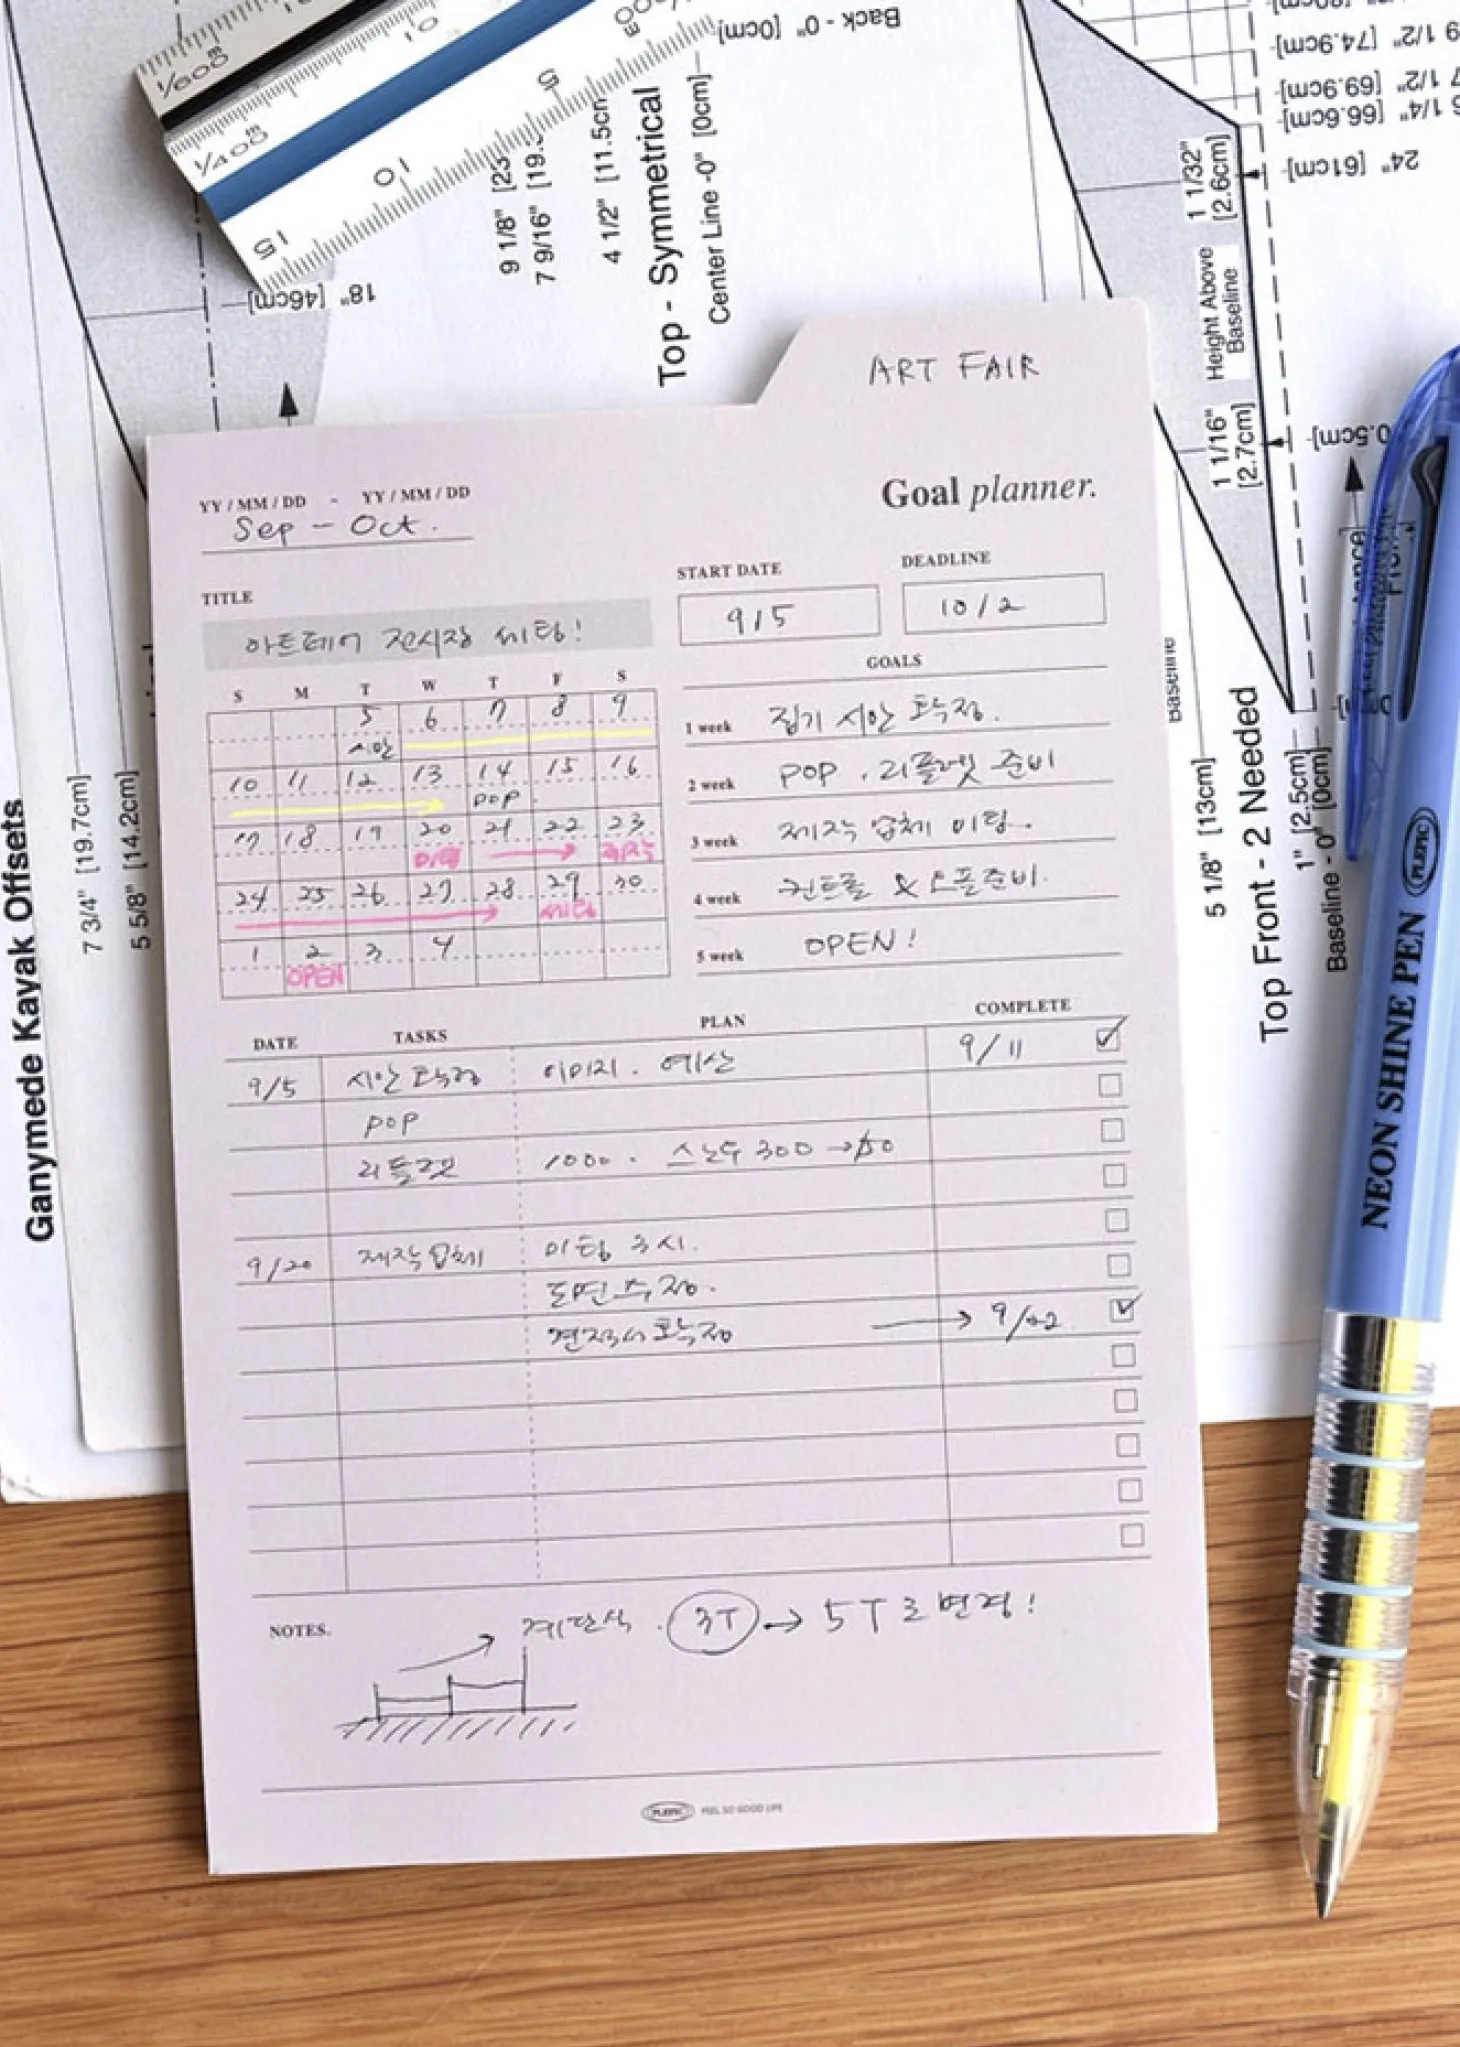 1/600
m
10
1/400
m
5
10
15
Back - 0" [0cm]
18" [46cm]
9 1/8" [23
7 9/16" [19.
4 1/2" [11.5cm
Top - Symmetrical
Center Line -0" [0cm]
[74.9cm]
[69.9cm]
[66.6cm]
24" [61cm]
1 1/32"
[2.6cm]
Height Above
Baseline
1 1/16"
[2.7cm]
ART FAIR
Goal planner.
YY / MM / DD - YY / MM / DD
Sep - Oct.
TITLE
아트페어 전시장 세팅!
START DATE
9/5
DEADLINE
10/2
S M T W T F S
5 6 7 8 9
시안
10 11 12 13 14 15 16
POP
17 18 19 20 21 22 23
미팅 제작
24 25 26 27 28 29 30
세팅
1 2 3 4
OPEN
GOALS
1 week 집기 시안 확정.
2 week POP . 리플렛 준비
3 week 제작 업체 미팅.
4 week 컨트롤 & 오픈준비.
5 week OPEN!
DATE TASKS PLAN COMPLETE
9/5 시안 확정 이미지 . 예산 9/11
POP
리플렛 1000 .
9/20 제작업체 미팅
도면 수정.
견적서 확정 → 9/22
NOTES.
계단식 . 3T → 5T로 변경!
PLEPIC FEEL SO GOOD LIFE
Ganymede Kayak Offsets
7 3/4" [19.7cm]
5 5/8" [14.2cm]
Baseline
5 1/8" [13cm]
Top Front - 2 Needed
1" [2.5cm]
Baseline - 0" [0cm]
PLEPIC
NEON SHINE PEN